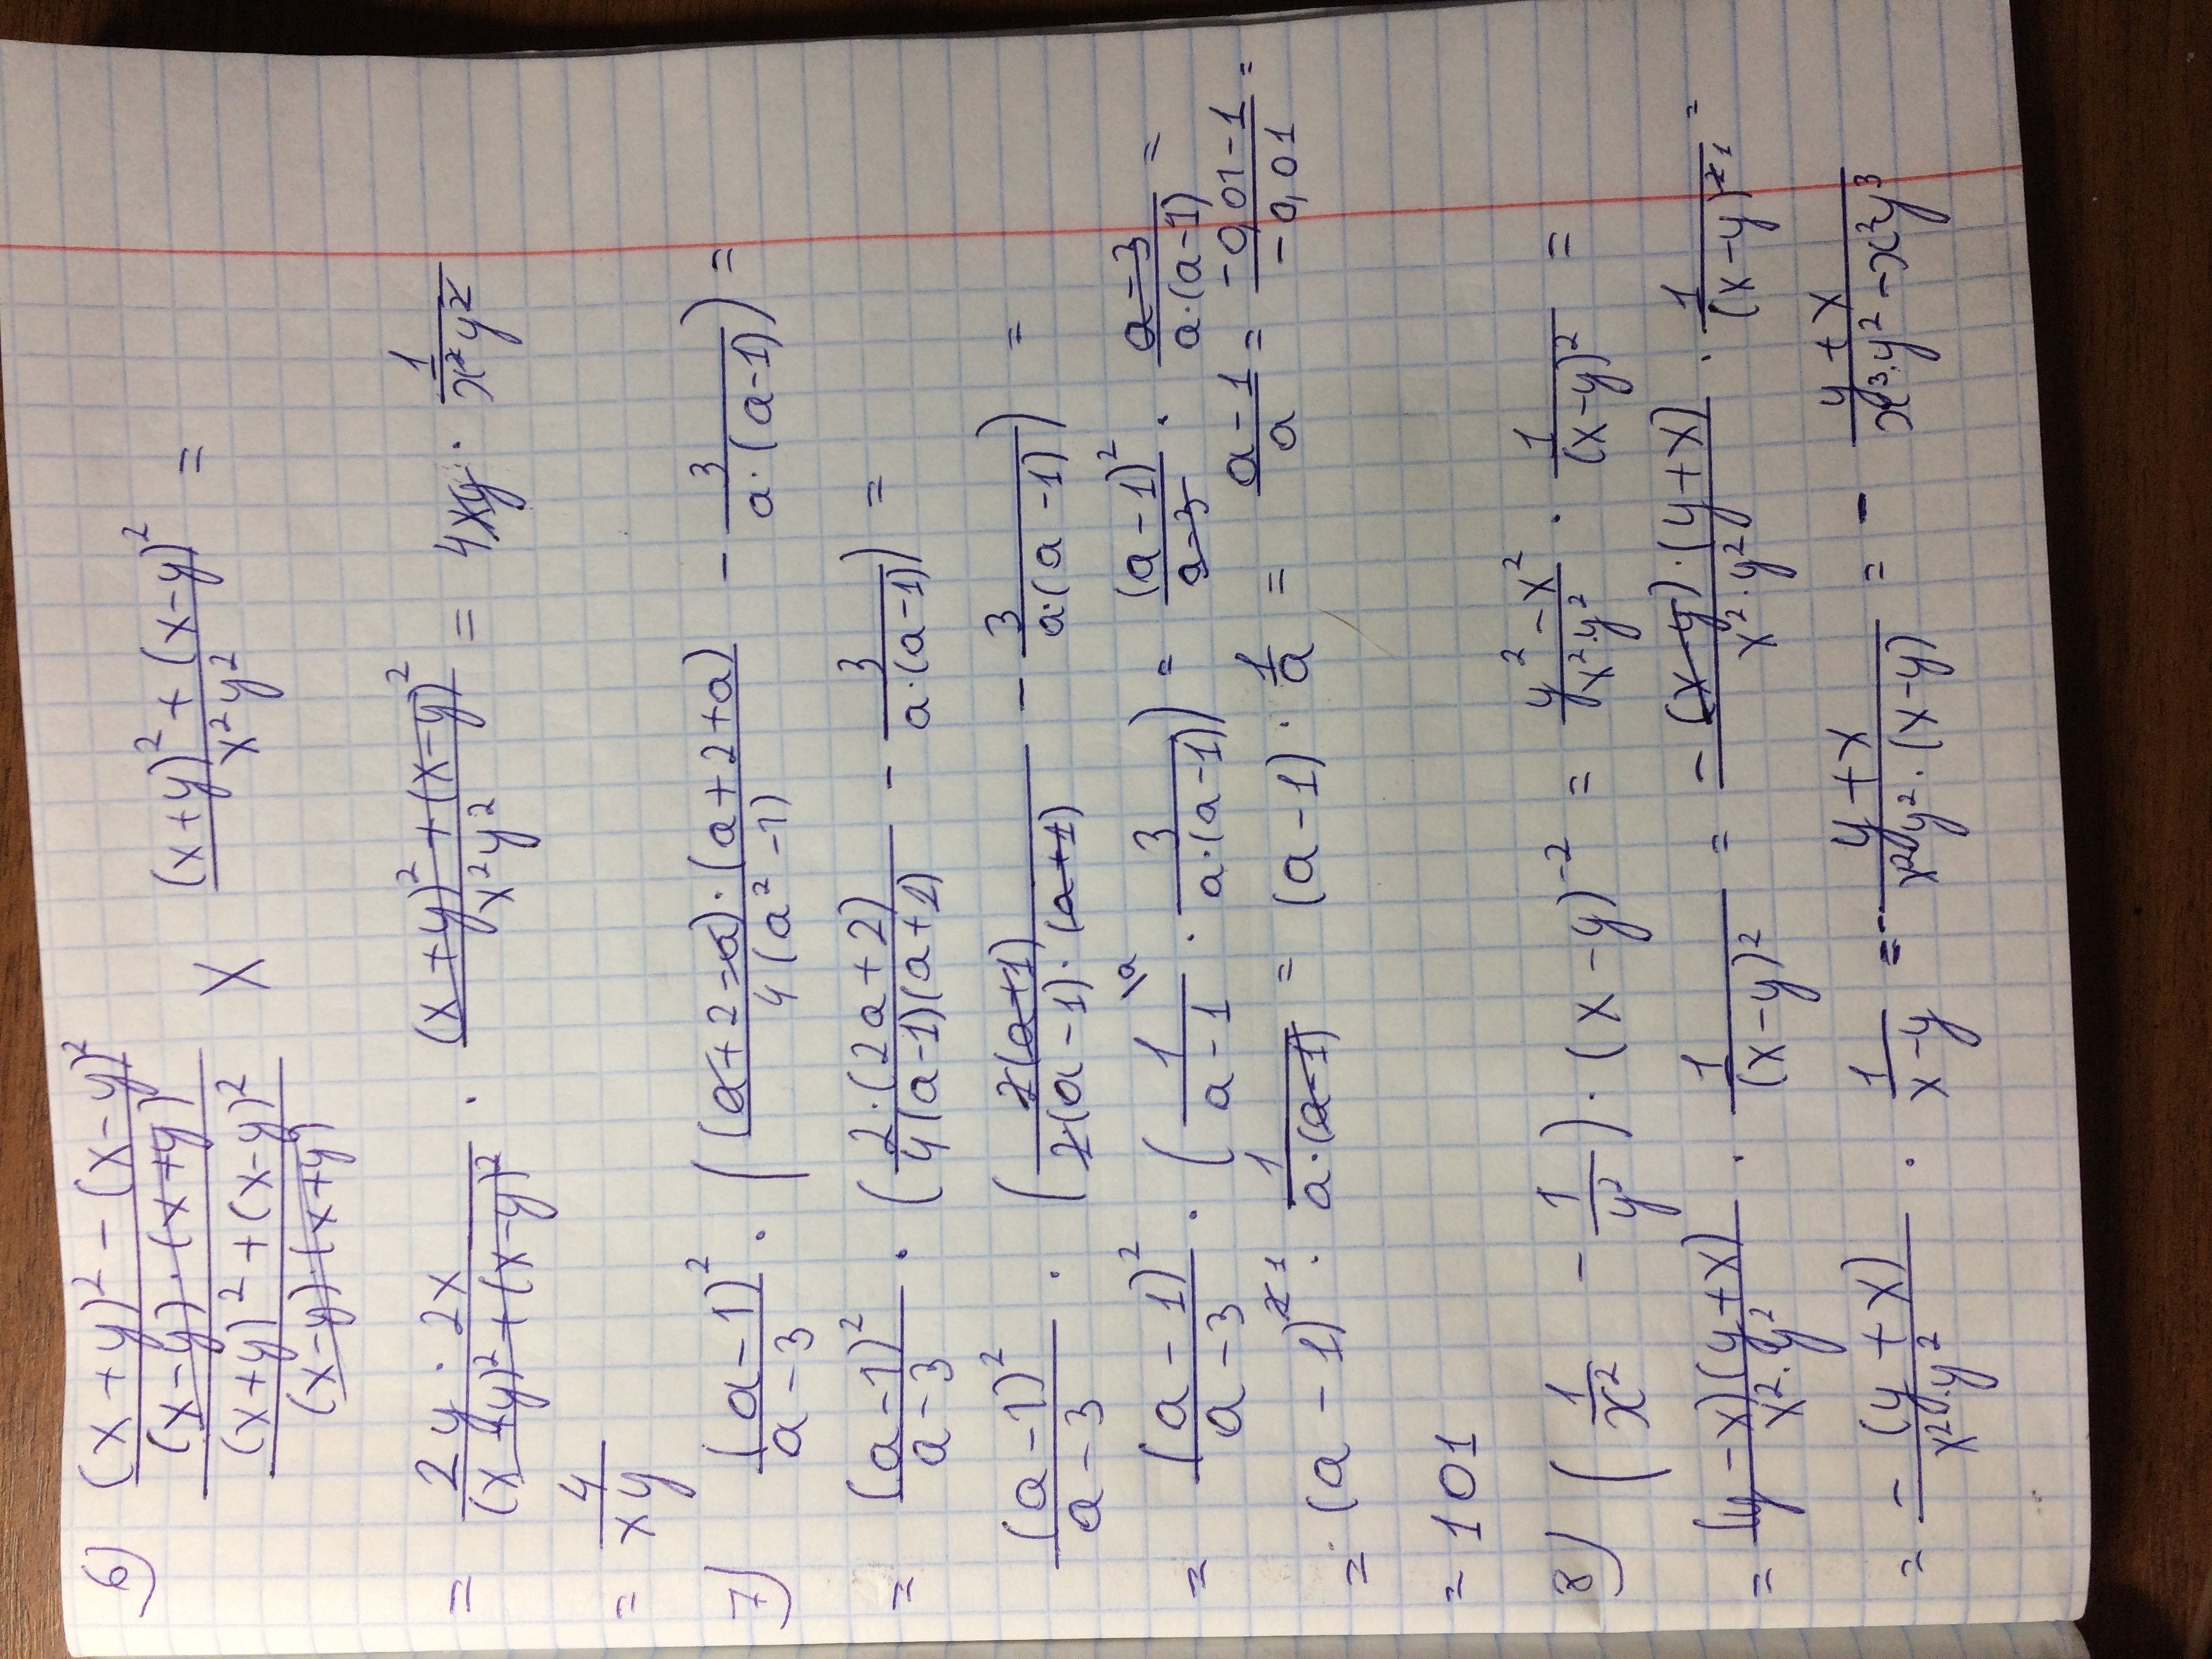 6) ((x+y)² - (x-y)²)/((x-y)·(x+y)) / ((x+y)² + (x-y)²)/((x-y)·(x+y)) X ((x+y)² + (x-y)²)/(x² y²) =
= (2y · 2x)/((x+y)² + (x-y)²) · ((x+y)² + (x-y)²)/(x² y²) = 4xy · 1/(x² y²)
= 4/(xy)
7) (a-1)²/(a-3) · ((a+2-a)·(a+2+a)/(4(a²-1)) - 3/(a·(a-1))) =
= (a-1)²/(a-3) · (2·(2a+2)/(4(a-1)(a+1)) - 3/(a·(a-1))) =
(a-1)²/(a-3) · (2(a+1)/(2(a-1)·(a+1)) - 3/(a·(a-1))) =
= (a-1)²/(a-3) · (1/(a-1) \a · 3/(a·(a-1))) = (a-1)²/(a-3) · (a-3)/(a·(a-1)) =
= (a-1)² ¹ · 1/(a·(a-1)) = (a-1) · 1/a = (a-1)/a = (-0,01-1)/(-0,01) =
= 101
8) (1/x² - 1/y²) · (x-y)⁻² = (y²-x²)/(x²·y²) · 1/(x-y)² =
= (y-x)(y+x)/(x²·y²) · 1/(x-y)² = -(x-y)·(y+x)/(x²·y²) · 1/(x-y)² ¹ =
= -(y+x)/(x²·y²) · 1/(x-y) = -(y+x)/(x²y²·(x-y)) = - (y+x)/(x³·y²-x²y³)